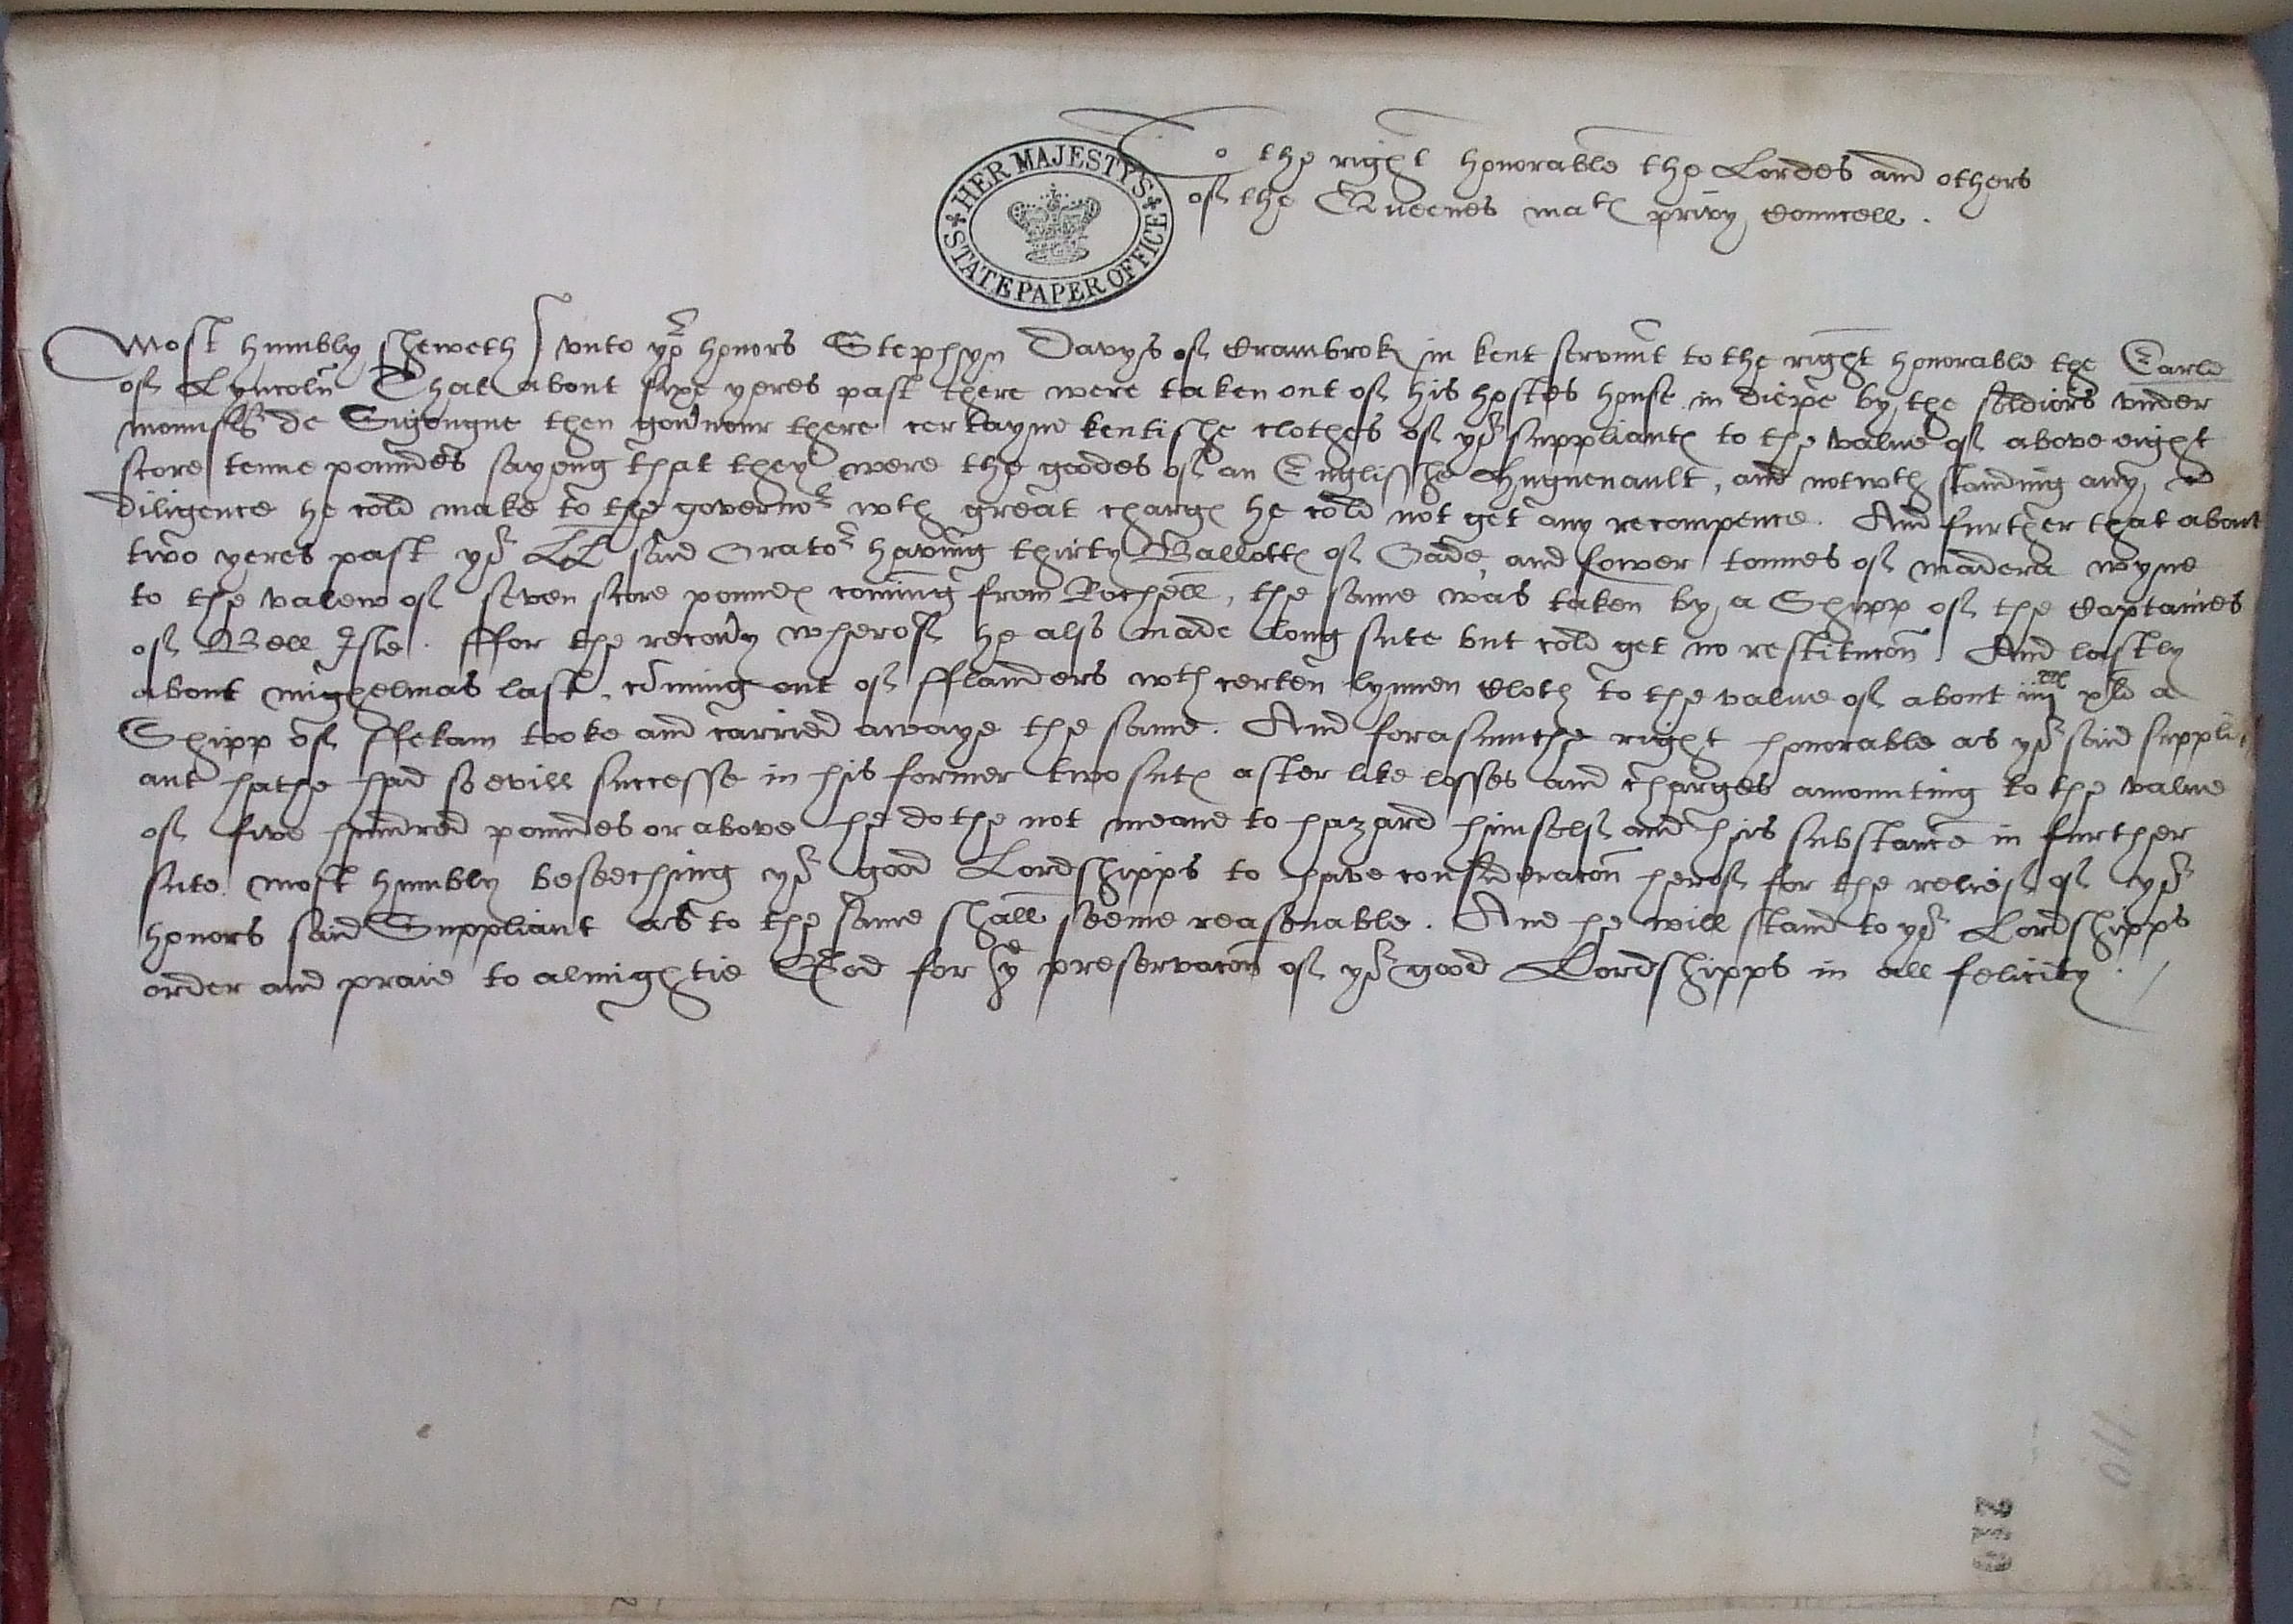 To the right honorable the Lordes and others
of the Queenes matꝭ privy Councell.
HER MAJESTY'S
STATE PAPER OFFICE
Most humbly sheweth vnto yor honors Stephyn Davys of Crambrok in kent servunt to the right honorable the Earle
of Lyncoln That about sixe yeres past there were taken out of his hostes house in diepe by the soldiors vnder
mounsr de Sigongne then gou'nour there certayne kentishe clothes of yor suppliantꝭ to the value of above eight
score tenne poundes sayeng that they were the goodes of an Englishe Huguenault, and notwth standing any
diligence he cold make to the governor wth great chargꝭ he cold not get any recompence. And further that about
two yeres past yor LL said Orator having thirty Ballottꝭ of Oade, and fower tonnes of madera wyne
to the valew of seven score poundꝭ coming from Rochell, the same was taken by a Shipp of the Captaines
of Bell Isle. ffor the recou'y wherof he also made long sute but cold get no restitucon. And lastly
about mighelmas last, coming out of fflanders wth certen lynnen Cloth to the value of about iiijxx xli a
Shipp of ffekam tooke and carried awaye the same. And forasmuche right honorable as yor said suppli-
ant hathe had so evill successe in his former two sutꝭ after like losses and charges amounting to the value
of five hundred poundes or above he dothe not meane to hazard himself and his substance in further
sute. most humbly beseeching yor good Lordshipps to have consideracon herof for the relief of yor
honors said Suppliant as to the same shall seeme reasonable. And he will stand to yor Lordshipps
order and praie to almightie God for ye preservacon of yor good Lordshipps in all felicity.
110
210